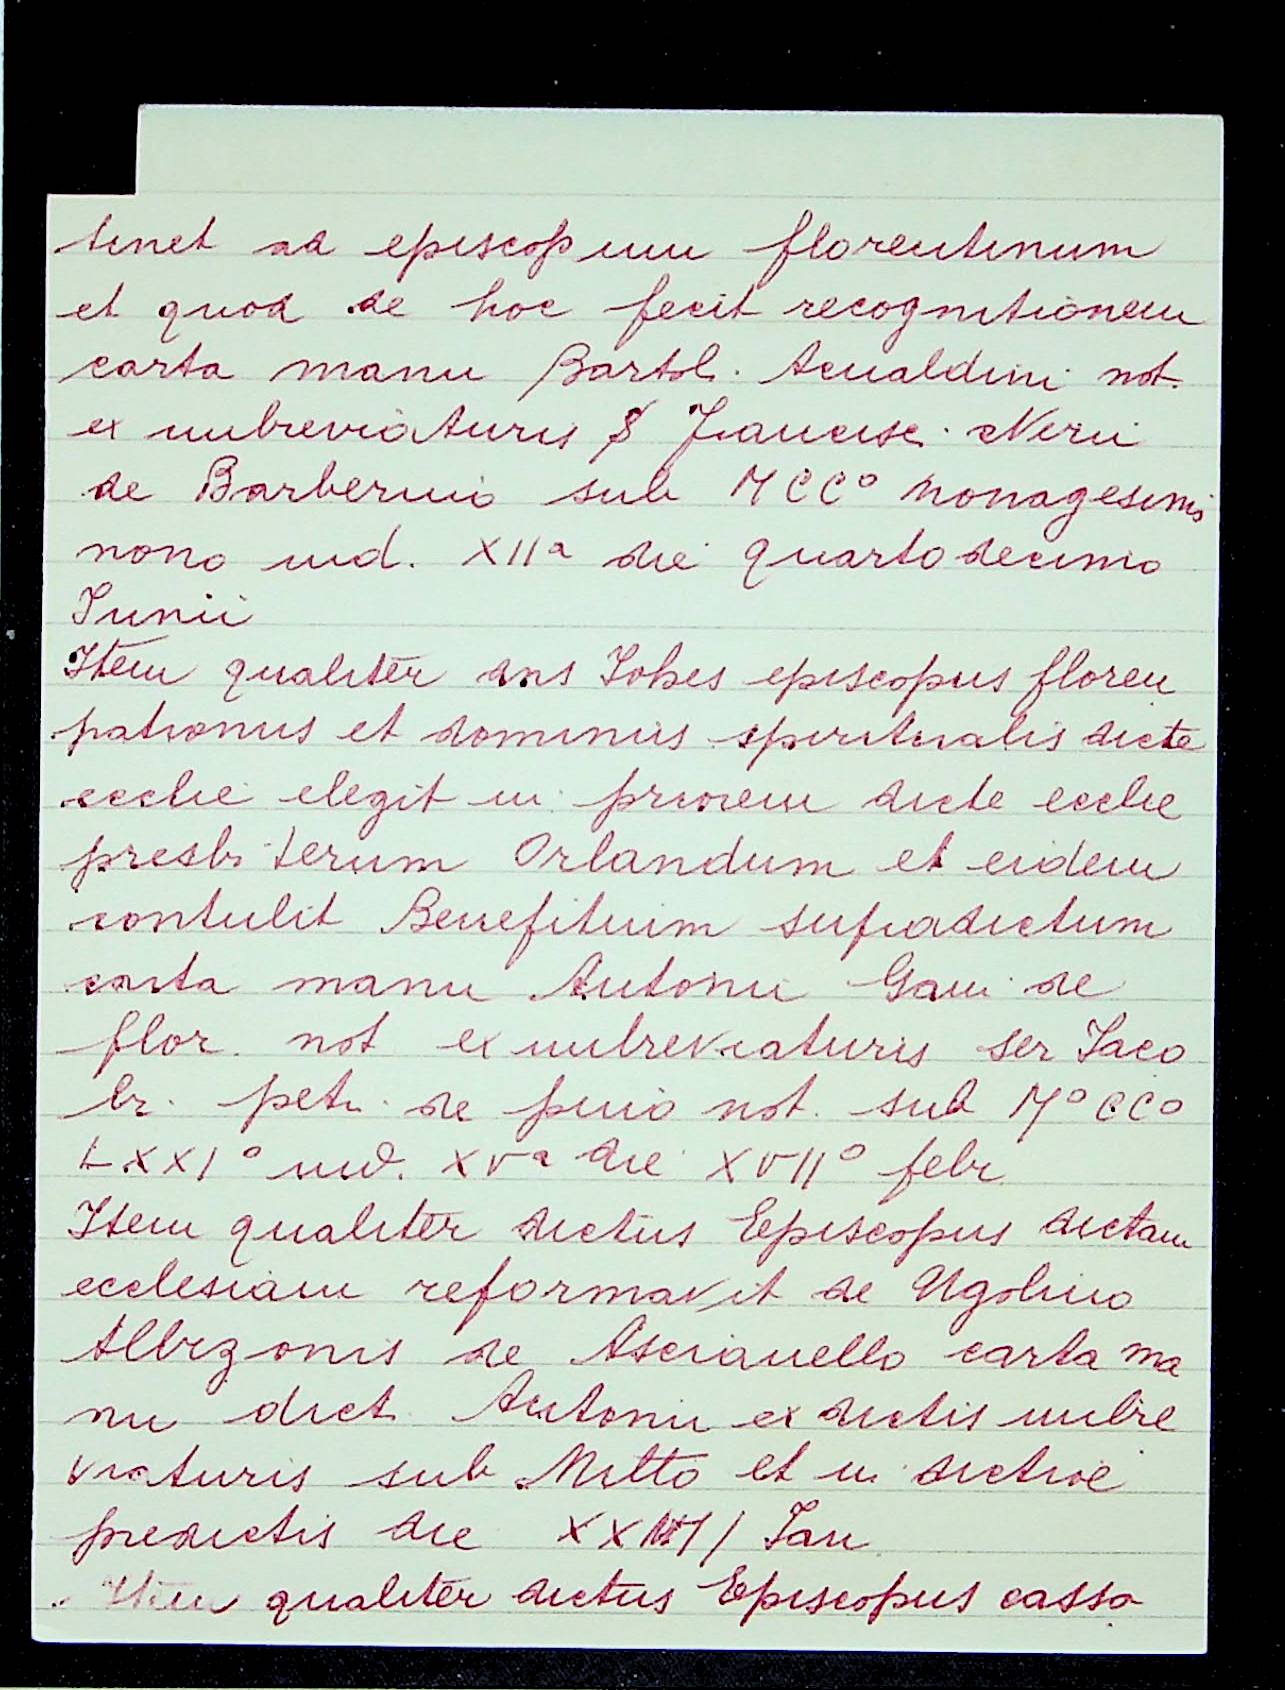 tinet ad episcopum florentinum
et quod de hoc fecit recognitionem
carta manu Bartol. Acualdini not.
ex imbreviaturis S Francisc. Nerii
de Barberino sub MCCº nonagesimo
nono ind. XIIª die quartodecimo
Junii
Item qualiter dns Johes episcopus floren
patronus et dominus spiritualis dicte
ecclie elegit in priorem dicte ecclie
presbiterum Orlandum et eidem
contulit Benefitium supradictum
carta manu Antonii Gani de
flor. not ex imbreviaturis ser Jaco
bi. petri. de puio not. sub Mº CCº
LXXIº ind. XVª die XVIIº febr
Item qualiter dictus Episcopus dictam
ecclesiam reformavit de Ugolino
Albizonis de Ascianello carta ma
nu dict. Antonii ex dictis imbre
viaturis sub Mitto et in dictioe
predictis die Jan
Item qualiter dictus Episcopus cassa